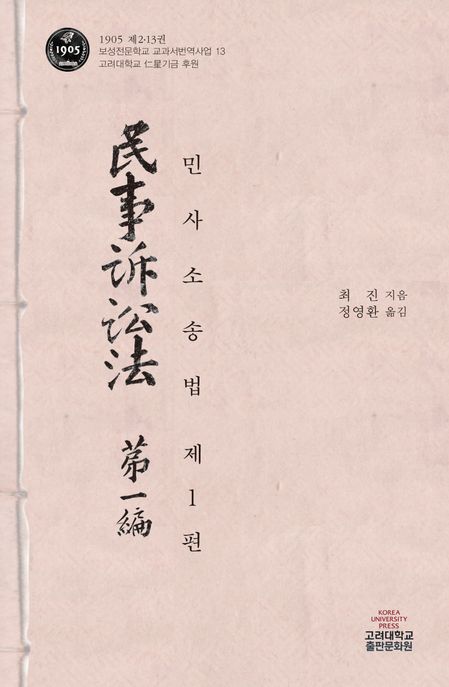 1905 제2·13권
보성전문학교 교과서번역사업 13
고려대학교 仁星기금 후원
1905
民事訴訟法 第一編
민사소송법 제1편
최 진 지음
정영환 옮김
KOREA
UNIVERSITY
PRESS
고려대학교
출판문화원